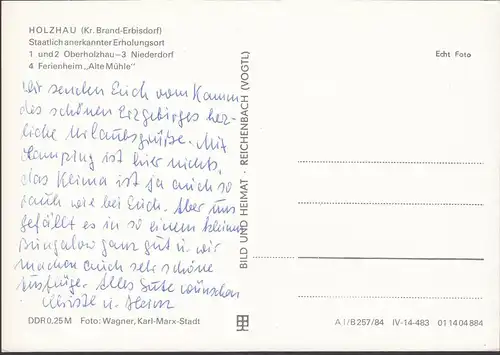 HOLZHAU (Kr. Brand-Erbisdorf)
Staatlich anerkannter Erholungsort
1 und 2 Oberholzhau – 3 Niederdorf
4 Ferienheim „Alte Mühle"
Echt Foto
Wir senden Euch vom Kamm
des schönen Erzgebirges herz-
liche Urlaubsgrüße. Mit
Camping ist hier nichts,
das Klima ist ja auch so
rauh wie bei Euch. Aber uns
gefällt es in so einem kleinen
Bungalow ganz gut u. wir
machen auch sehr schöne
Ausflüge. Alles Gute wünschen
Christl u. Heinz
BILD UND HEIMAT · REICHENBACH (VOGTL)
DDR 0,25 M Foto: Wagner, Karl-Marx-Stadt
A I/B 257/84 IV-14-483 01 14 04 884